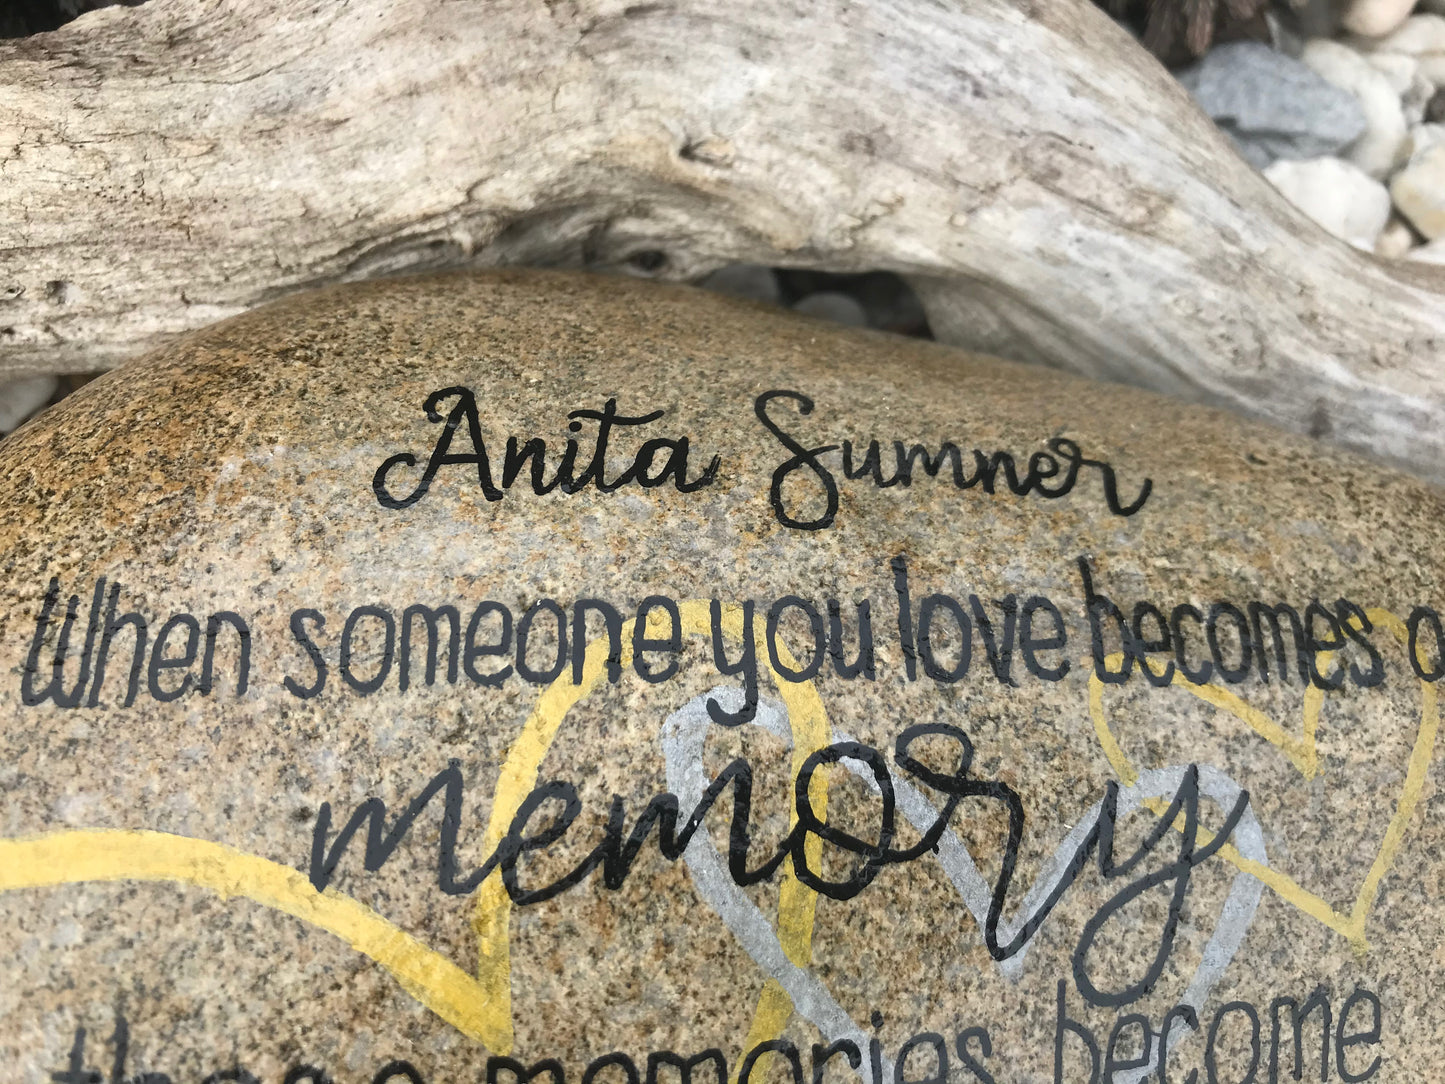 Anita Sumner
When someone you love becomes a
memory
those memories become